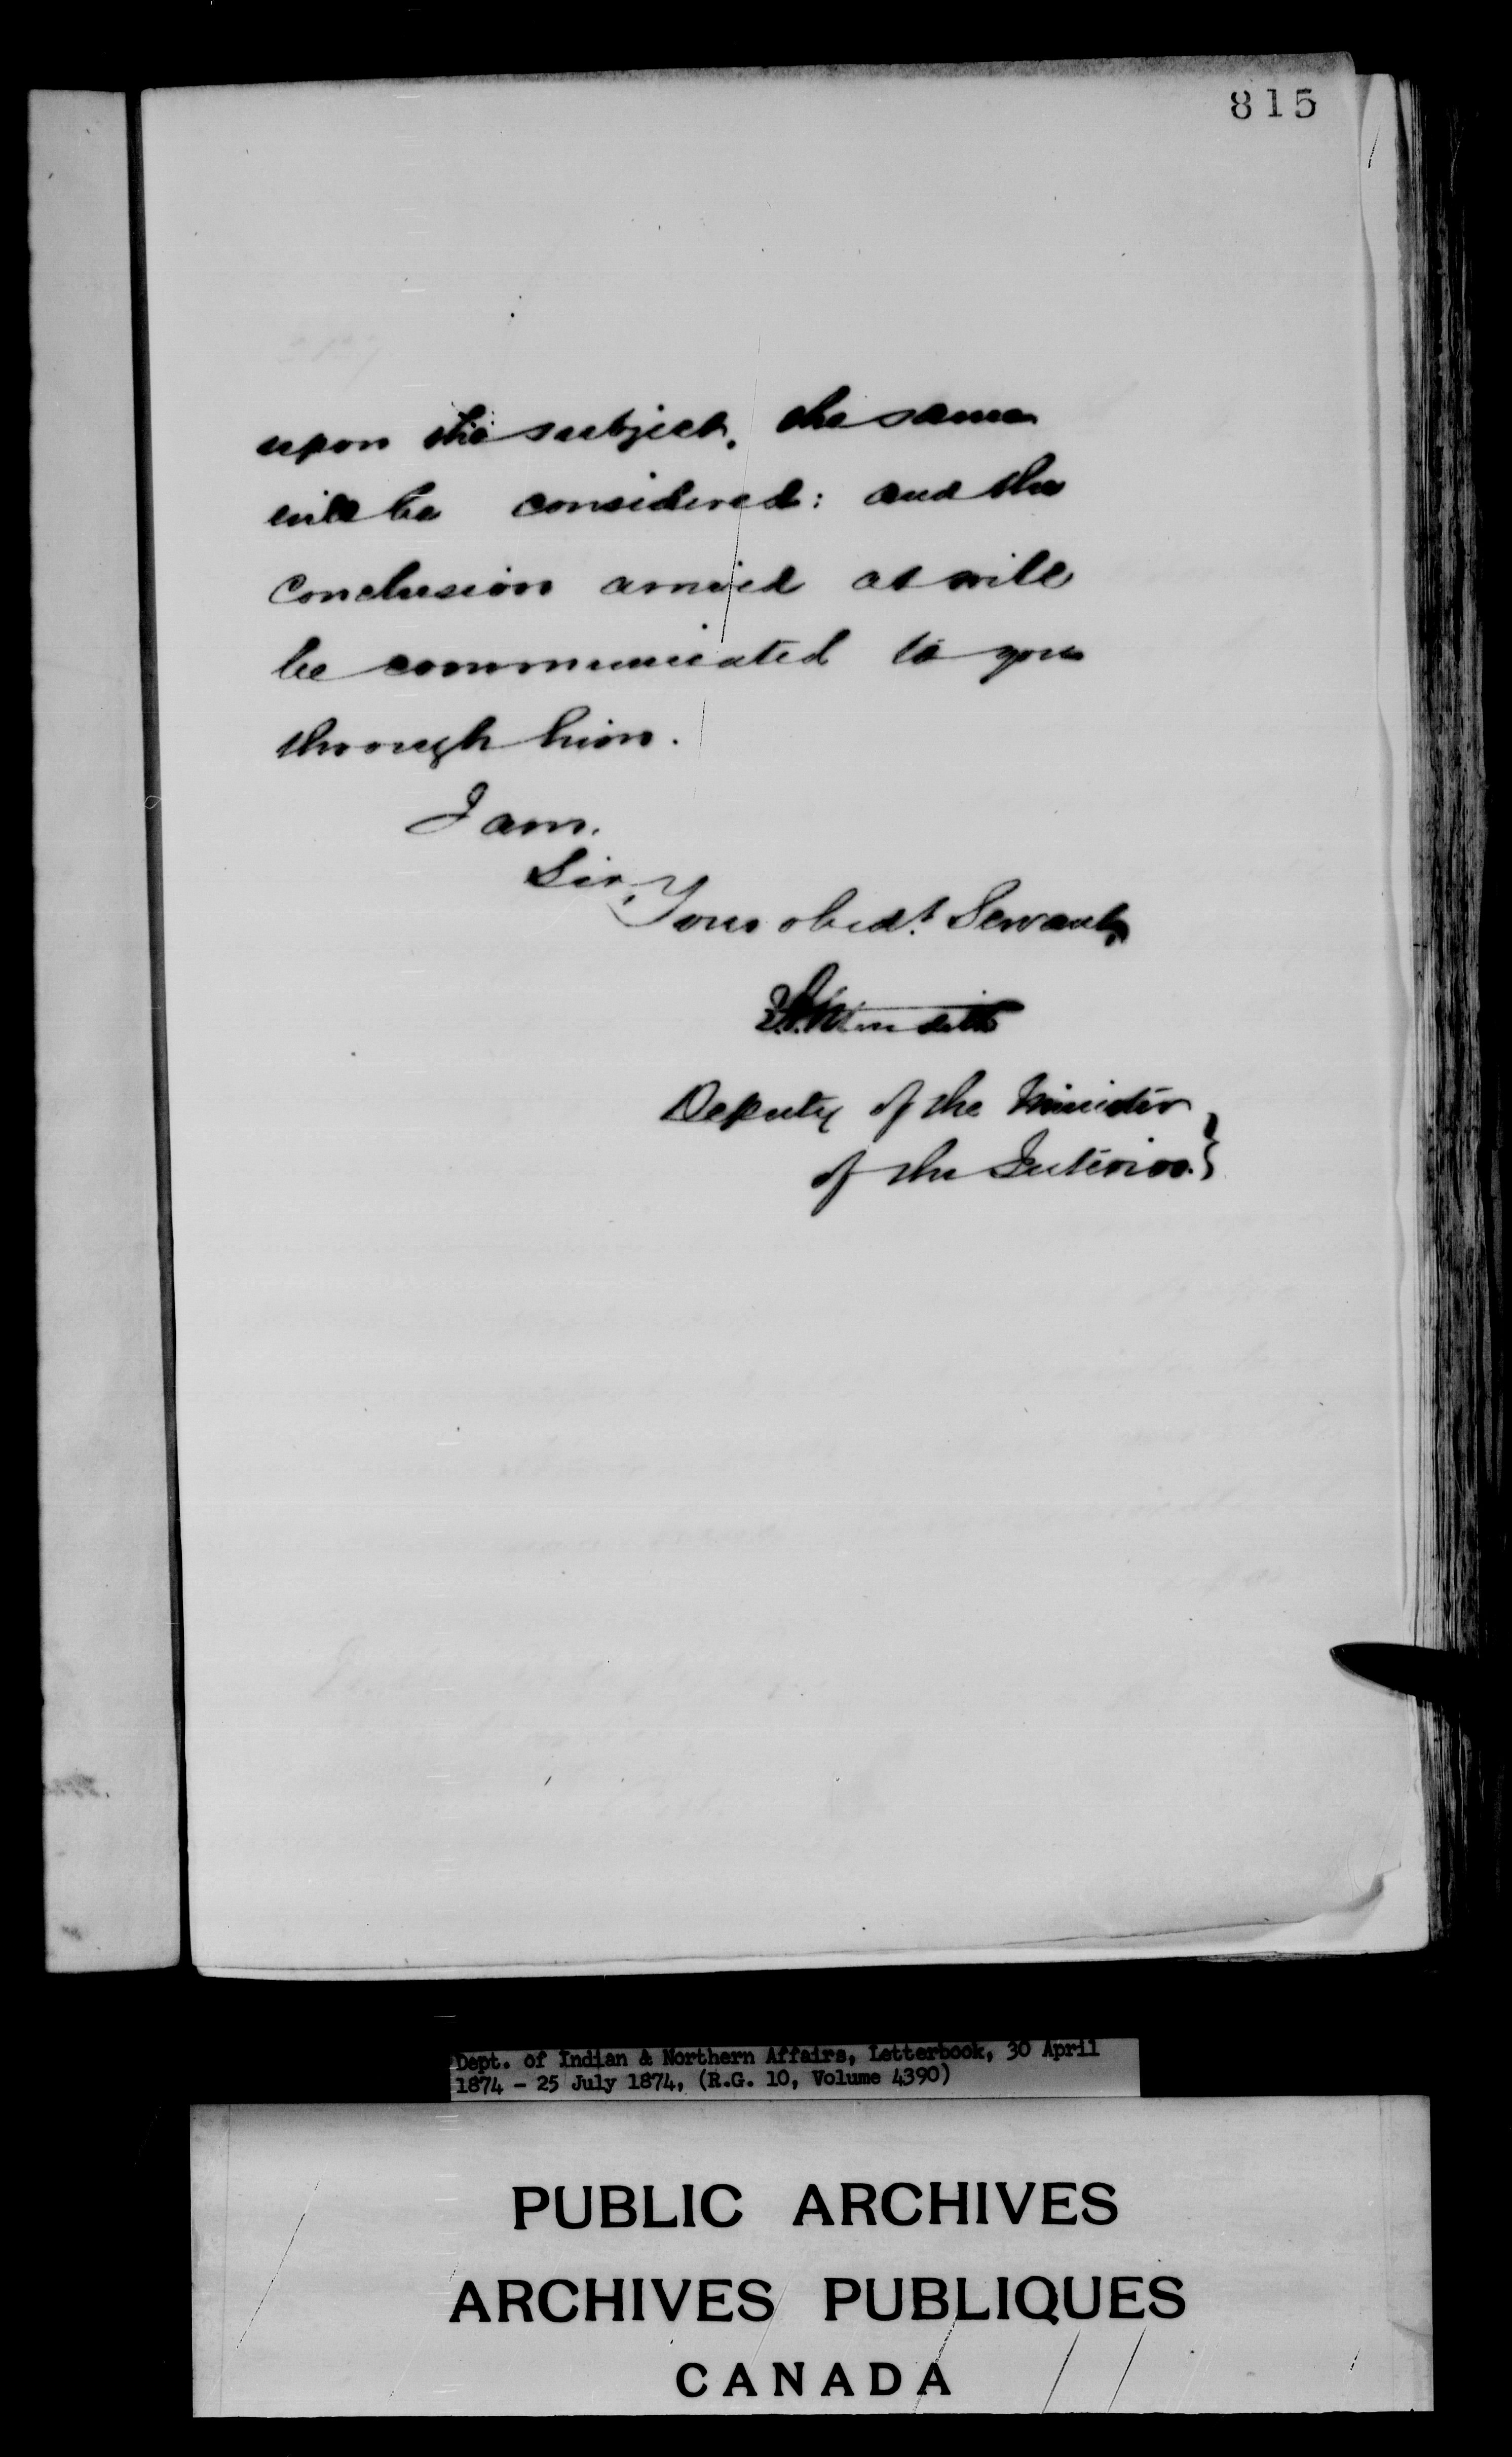 815
upon the subject, the same
will be considered: and the
conclusion arrived at will
be communicated to you
through him.
I am,
Sir,
Your obedt. Servant,
Meredith
Deputy of the Minister
of the Interior.}
Dept. of Indian & Northern Affairs, Letterbook, 30 April
1874 - 25 July 1874, (R.G. 10, Volume 4390)
PUBLIC ARCHIVES
ARCHIVES PUBLIQUES
CANADA